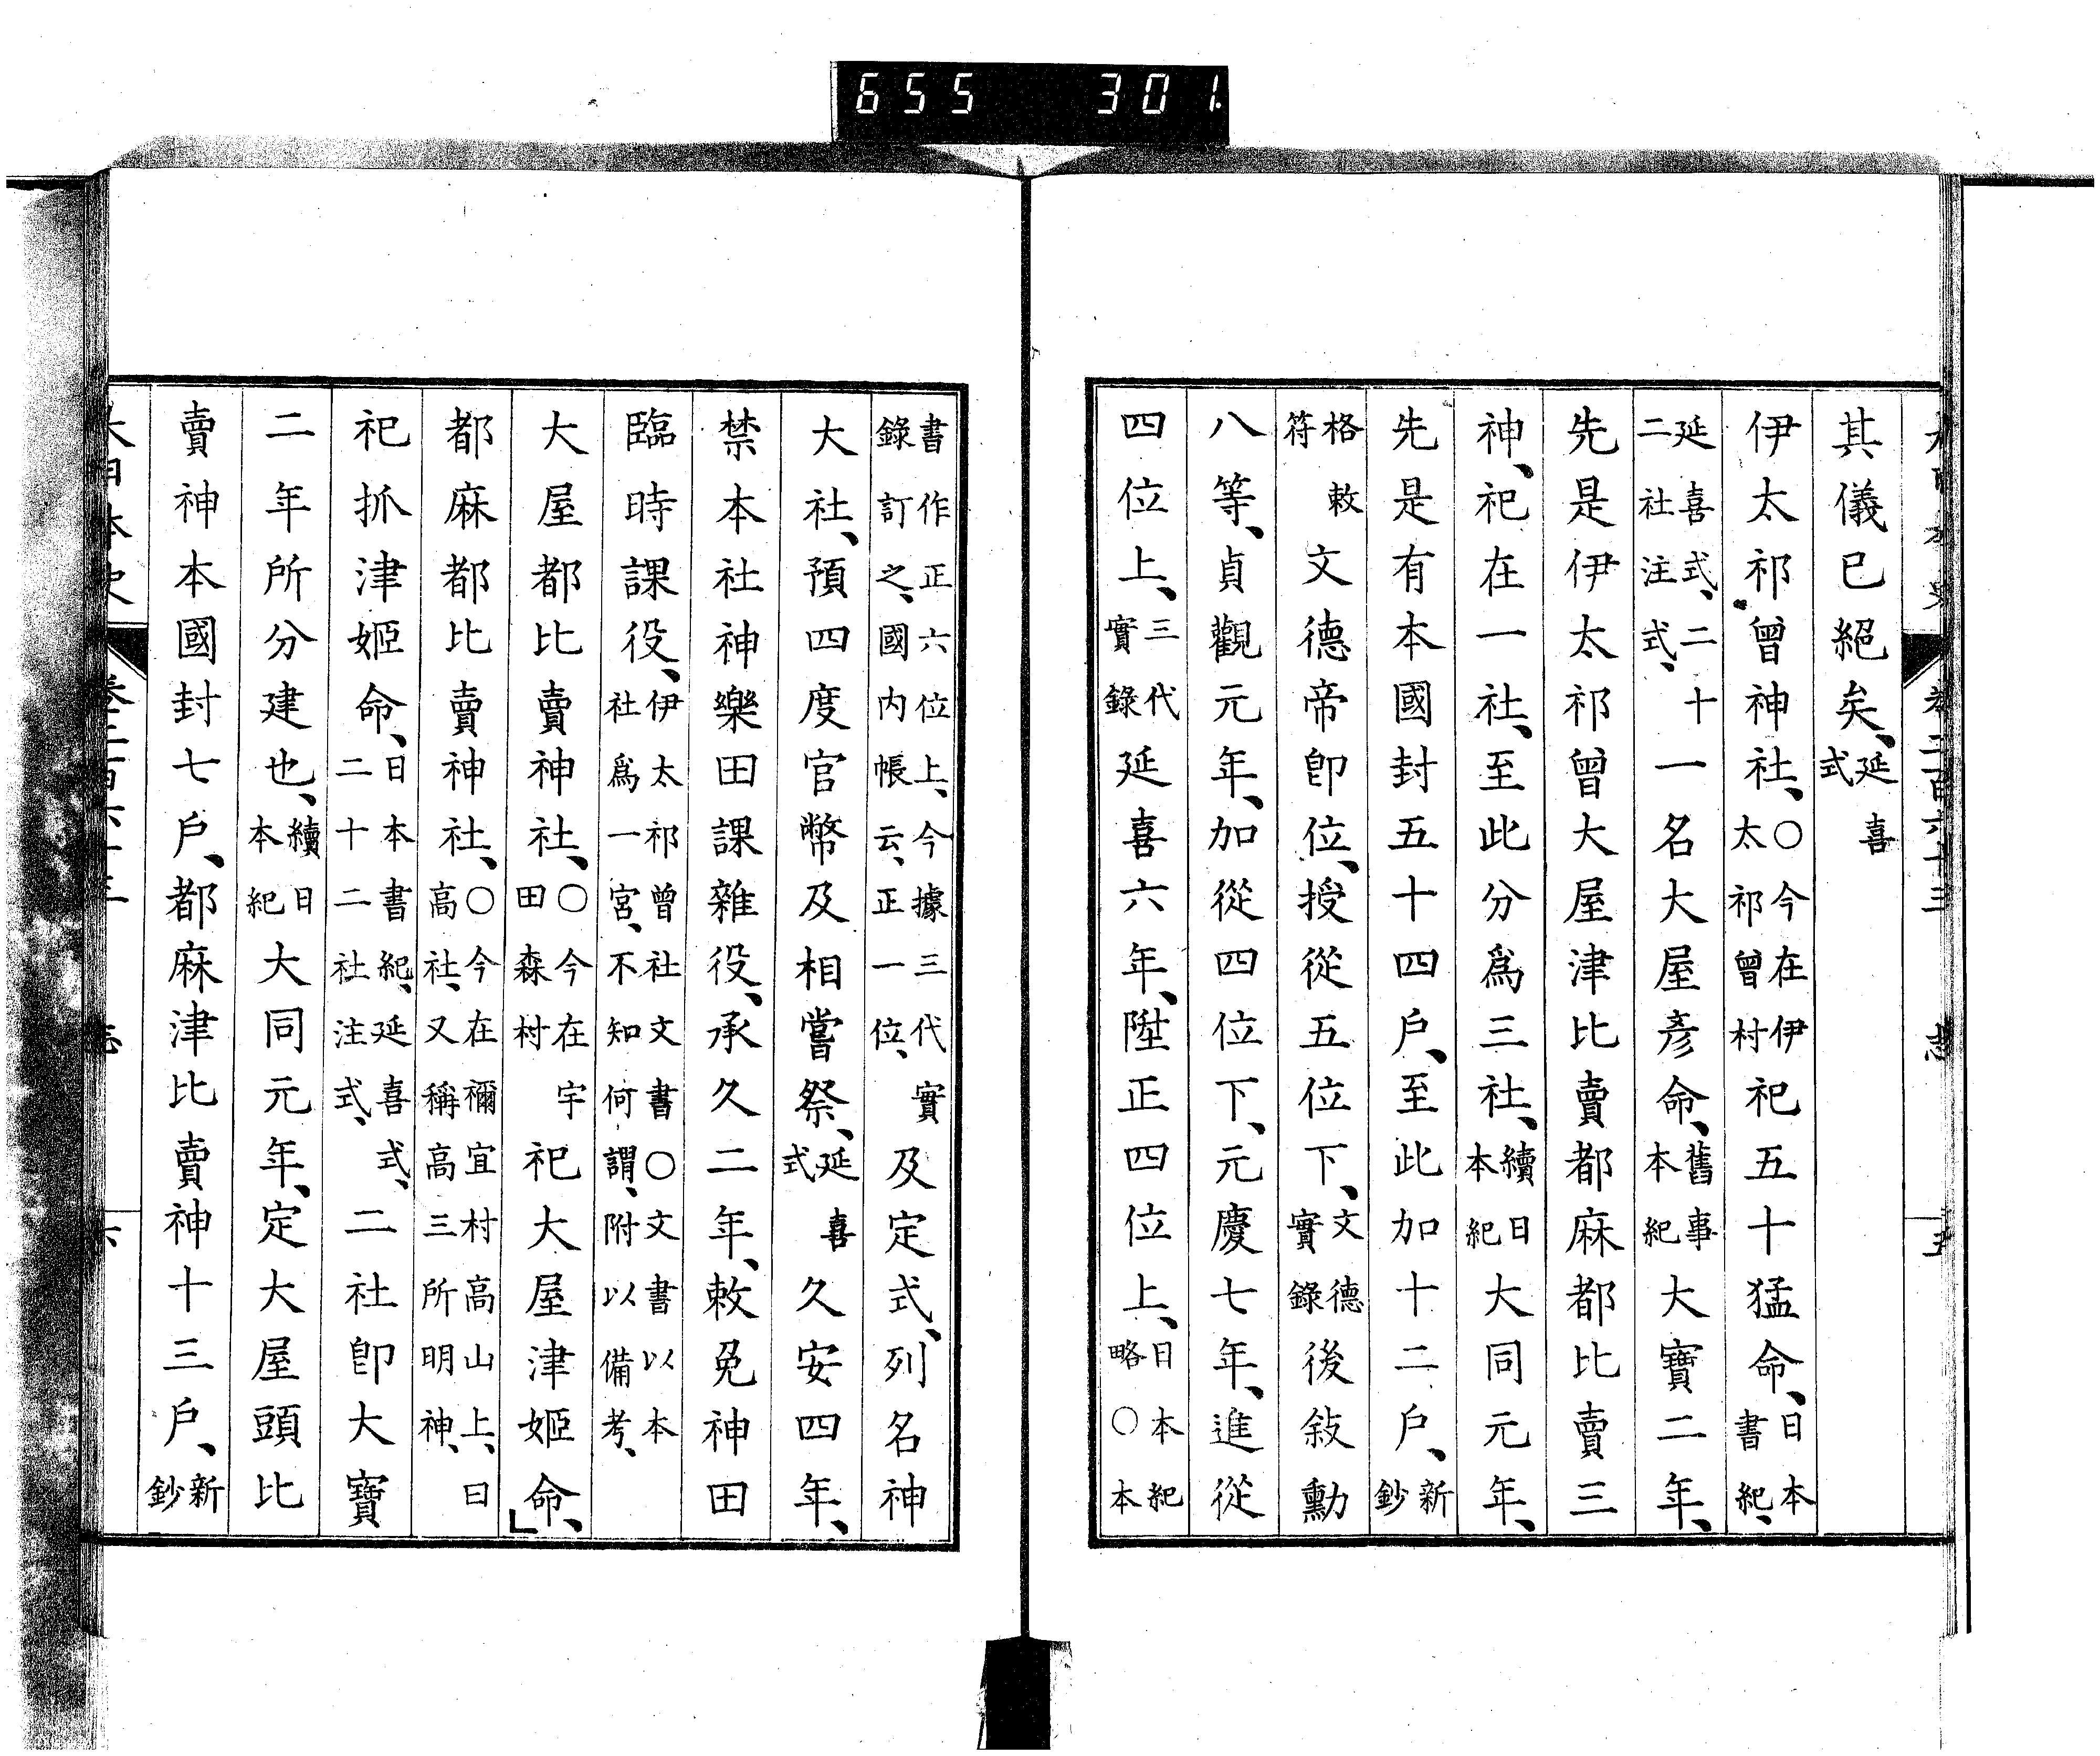 655 301
其儀已絕矣、延喜式
伊太祁曾神社、○今在伊太祁曾村祀五十猛命、日本書紀、
延喜式、二十二社注式、一名大屋彥命、舊事本紀大寶二年、
先是伊太祁曾大屋津比賣都麻都比賣三
神、祀在一社、至此分爲三社、續日本紀大同元年、
先是有本國封五十四戶、至此加十二戶、新鈔
格敕符文德帝卽位、授從五位下、文德實錄後敍勳
八等、貞觀元年、加從四位下、元慶七年、進從
四位上、三代實錄延喜六年、陞正四位上、日本紀略○本
書作正六位上、今據三代實錄訂之、國內帳云、正一位、及定式、列名神
大社、預四度官幣及相嘗祭、延喜式久安四年、
禁本社神樂田課雜役、承久二年、敕免神田
臨時課役、伊太祁曾社文書○文書以本社爲一宮、不知何謂、附以備考、
大屋都比賣神社、○今在宇田森村祀大屋津姬命、
都麻都比賣神社、○今在禰宜村高山上、曰高社、又稱高三所明神、
祀抓津姬命、日本書紀、延喜式、二十二社注式、二社卽大寶
二年所分建也、續日本紀大同元年、定大屋頭比
賣神本國封七戶、都麻津比賣神十三戶、新鈔
大日本史 卷二百六十三 志 六